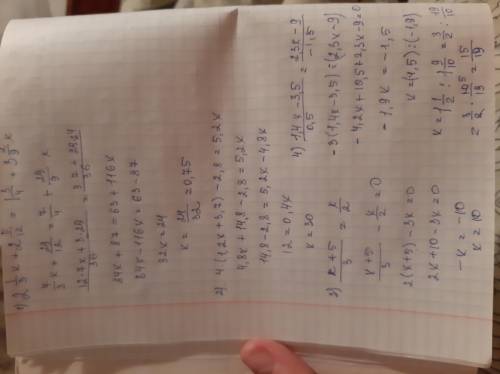 1) 2 1/3 x + 2 5/12 = 1 3/4 + 3 2/9 x
7/3 x + 29/12 = 7/4 + 29/9 x
84x + 87 = 63 + 116x
84x - 116x = 63 - 87
32x = 24
x = 24/32 = 0,75
2) 4(1,2x + 3,7) - 2,8 = 5,2x
4,8x + 14,8 - 2,8 = 5,2x
14,8 - 2,8 = 5,2x - 4,8x
12 = 0,4x
x = 30
3) x+5/3 = x/2
x+5/3 - x/2 = 0
2(x+5) - 3x = 0
2x + 10 - 3x = 0
-x = -10
x = 10
4) 1,4x - 3,5/0,5 = 2,3x - 9/-1,5
-3(1,4x - 3,5) = (2,3x - 9)
-4,2x + 10,5 + 2,3x - 9 = 0
-1,9x = -1,5
x = (1,5) : (-1,9)
x = 1 1/2 : 1 9/10 = 3/2 : 19/10
= 3/2 · 10/19 = 15/19